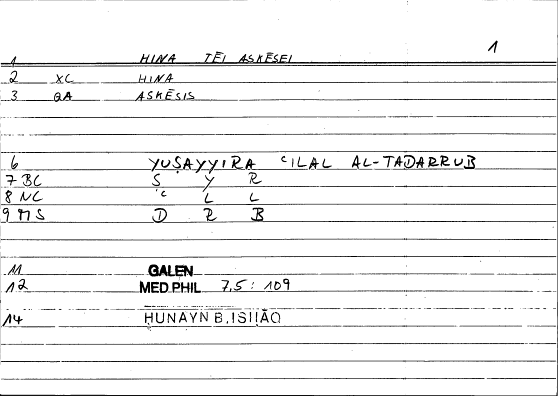 1
1 HINA TĒI ASKĒSEI
2 XC HINA
3 QA ASKĒSIS
6 YUṢAYYIRA ʿILAL AL-TADARRUB
7 BC Ṣ Y R
8 NC ʿ L L
9 MS D R B
11 GALEN
12 MED.PHIL 7,5: 109
14 ḤUNAYN B. ISḤĀQ